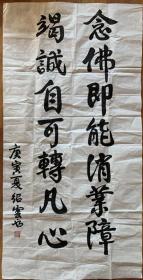 念佛即能消業障
竭誠自可轉凡心
庚寅夏紹雲書